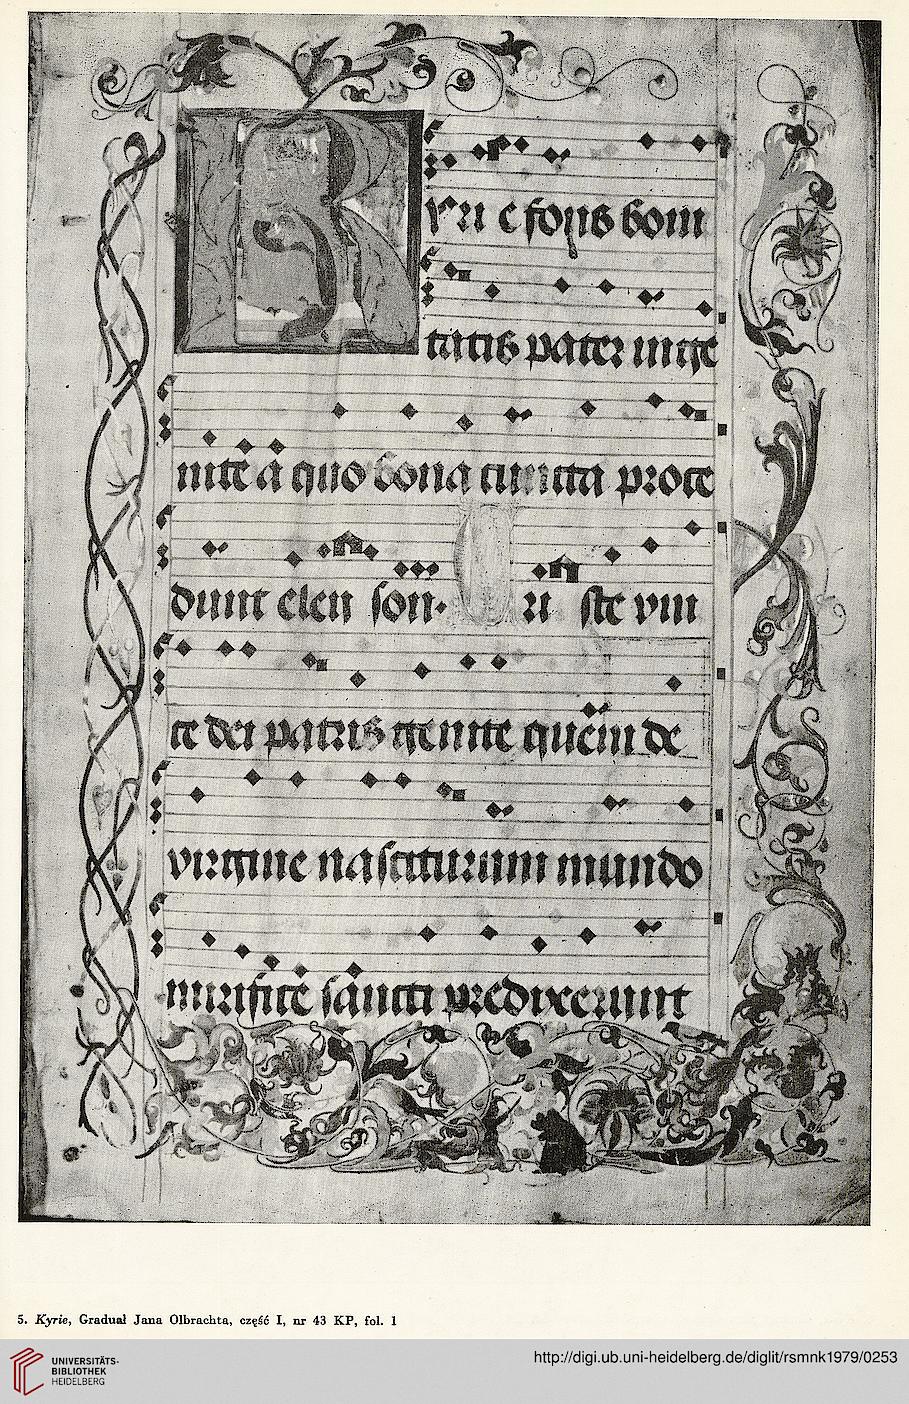 K
yri e fons boni
tatis pater inge
nite a quo bona cuncta proce
dunt eleyson. Xri ste vni
te dei patris genite quem de
virgine nasciturum mundo
mirifice sancti predixerunt
5. Kyrie, Graduał Jana Olbrachta, część I, nr 43 KP, fol. 1
UNIVERSITÄTS-
BIBLIOTHEK
HEIDELBERG
http://digi.ub.uni-heidelberg.de/diglit/rsmnk1979/0253